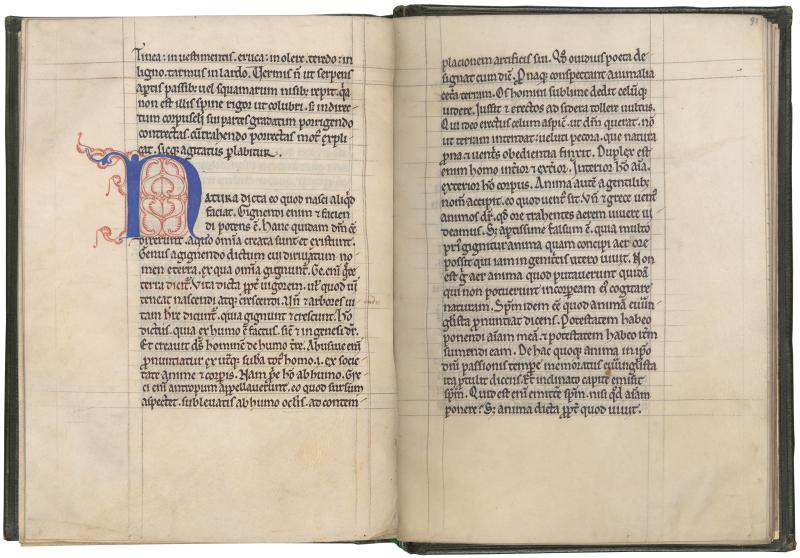 Tinea: in uestimentis. eruca: in olere. teredo: in
ligno. tarmus in lardo. Uermis n̄ ut serpens
aptis passib; uel squamarum nisib; repit. q̄a
non est illis spine rigor ut colubri. s; in direc-
tum corpusculi sui partes gradatim porrigendo
contrectas. c̄trahendo porrectas mot' expli
cat. sicq; agitatus p̄labitur.
NATURA dicta eo quod nasci aliq̄d
faciat. Gignendi enim ⁊ facien
di potens ē. Hanc quidam dm̄ eē
dixerunt. a quo om̄ia creata sunt et existunt.
Genus a gignendo dictum cui diriuatum no-
men e terra. ex qua om̄ia gignunt'. Ge. eni ḡce
terra dicit'. Vita dicta ꝓpt' uigorem. ul' quod uī
teneat nascendi atq; crescendi. Uñ ⁊ arbores ui
tam hr̄e dicunt'. quia gignunt' ⁊ crescunt. Hō
dictus. quia ex humo ē factus. sic̄ ⁊ in genesi dr̄.
Et creauit ds̄ hominē de humo tr̄e. Abusiue eni
ꝓnuntiatur ex utq; suba tot' homo .i. ex socie
tate anime ⁊ corporis. Nam ꝓpe hō ab humo. Gre
ci eni antropum appellauerunt. eo quod sursum
aspectet. subleuatis ab humo oclis. ad contem
91
placionem artificis sui. Qd̄ ouidius poeta de
signat cum dic̄. Pnaq; conspectant animalia
cet'a terram. Os homini sublime dedit celūq;
uidere. Iussit ⁊ erectos ad sidera tollere uultus.
Qui ideo erectus celum aspic̄. ut dm̄ querat. nō
ut terram intendat: ueluti pecora. que natura
prona ⁊ uentris obedientia finxit. Duplex est
enim homo int'ior ⁊ ext'ior. Interior hō aīa.
exterior hō corpus. Anima aut̄ a gentilib;
nom̄ accepit. eo quod uent' sit. Vñ ⁊ grece uent'
animos dr̄. qd̄ ore trahentes aerem uiuere ui
deamus. S; aptissime falsum ē. quia multo
pri' gignitur anima quam concipi aer ore
possit qui iam in genitricis utero uiuit. Non
est ḡ aer anima quod putauerunt quidā
qui non potuerunt incorpeam ei' cogitare
naturam. Spm̄ idem eē quod animā euūn-
glista ꝓnuntiat dicens. Potestatem habeo
ponendi aīam meā. ⁊ potestatem habeo itm̄
sumendi eam. De hac quoq; anima in ipō
dn̄i passionis tempe memoratus euūnglista
ita ꝓtulit dicens. Et inclinato capite emisit
spm̄. Quid est eni emitt'e spm̄. nisi qd̄ aīam
ponere? S; anima dicta ꝓpt' quod uiuit.